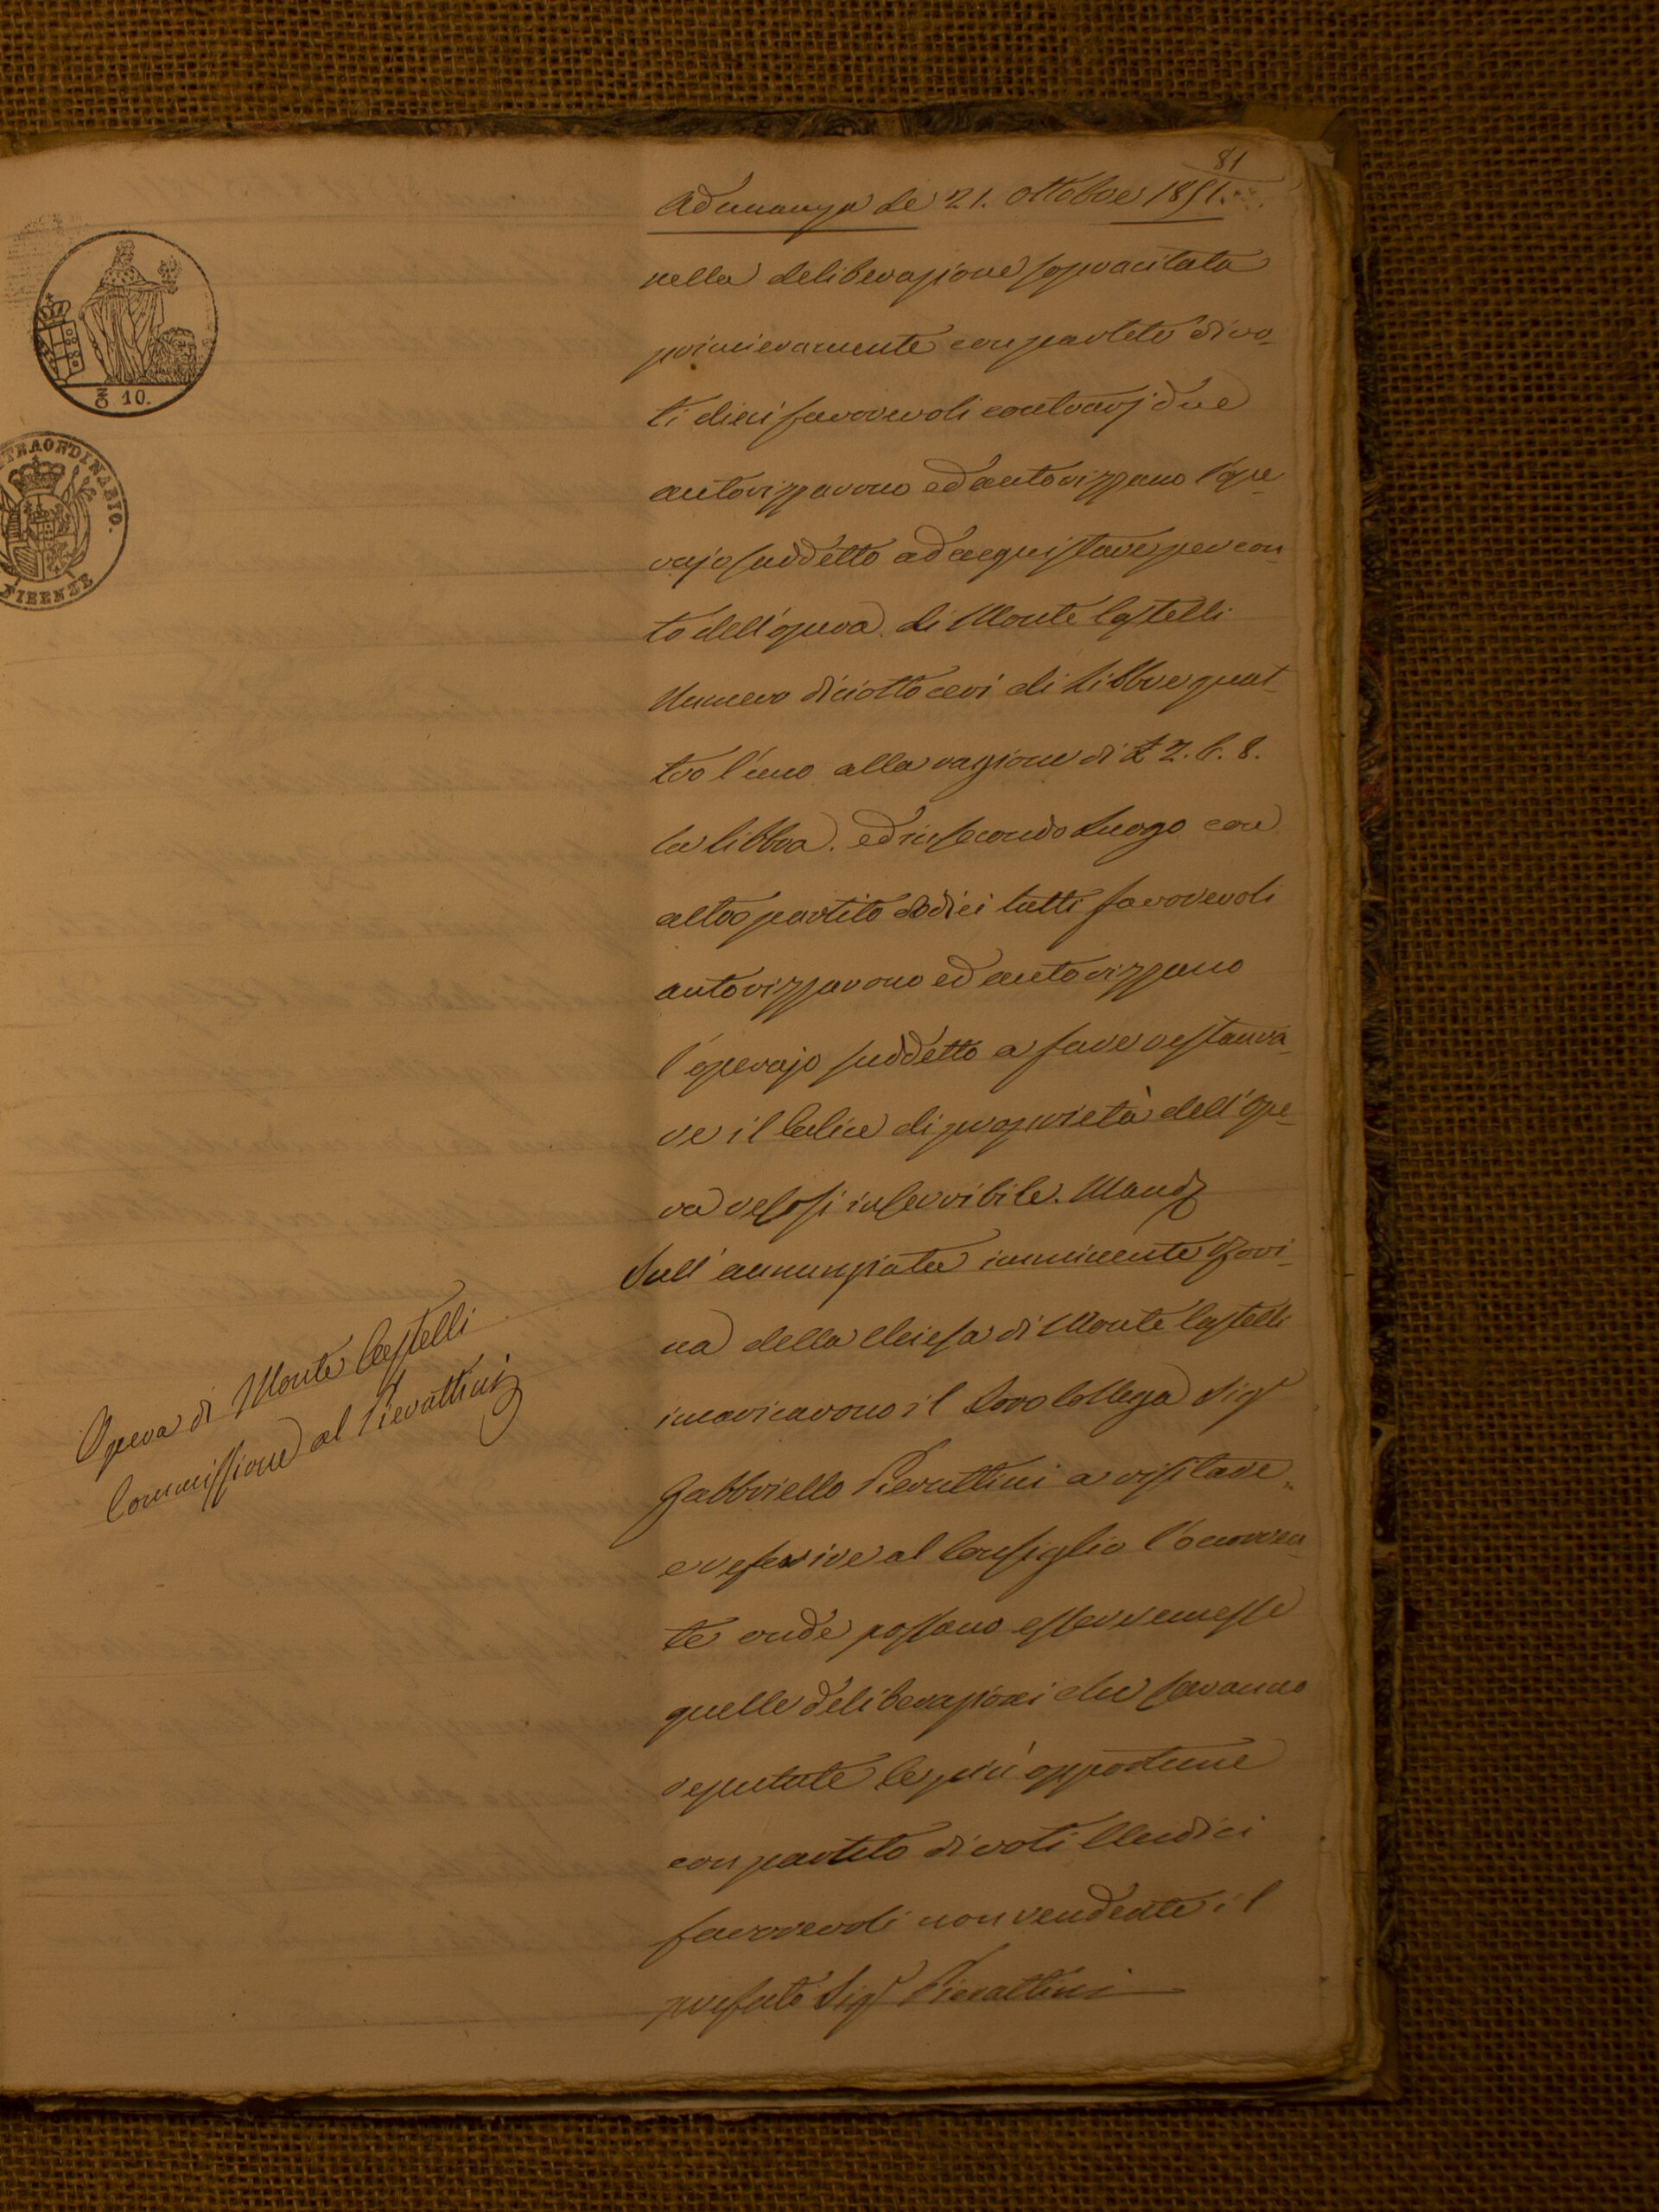 81
Adunanza de 21. Ottobre 1851.
nella deliberazione sopracitata
primieramente con partito di vo-
ti dieci favorevoli contrarj due
autorizzarono ed autorizzano l'Ope-
rajo suddetto ad acquistare per con-
to dell'opera di Monte Castelli
Numero diciotto ceri di Libbre quat-
tro l'uno alla ragione di £ 2. 6. 8.
la libbra. ed in secondo Luogo con
altro partito dodici tutti favorevoli
autorizzarono ed autorizzano
l'operajo suddetto a fare restaura-
re il Calice di proprietà dell'Ope-
ra resosi inservibile. Mand
Sull'annunziata imminente rovi-
na della Chiesa di Monte Castelli
incaricarono il Loro Collega Sigr
Gabbriello Pierattini a visitare
e referire al Consiglio l'occorren-
te onde possano essere emesse
quelle deliberazioni che saranno
reputate le più opportune
con partito di voti Undici
favorevoli non rendente il
prefato Sigr Pierattini
Opera di Monte Castelli
Commissione al Pierattini
10.
STRAORDINARIO.
FIRENZE